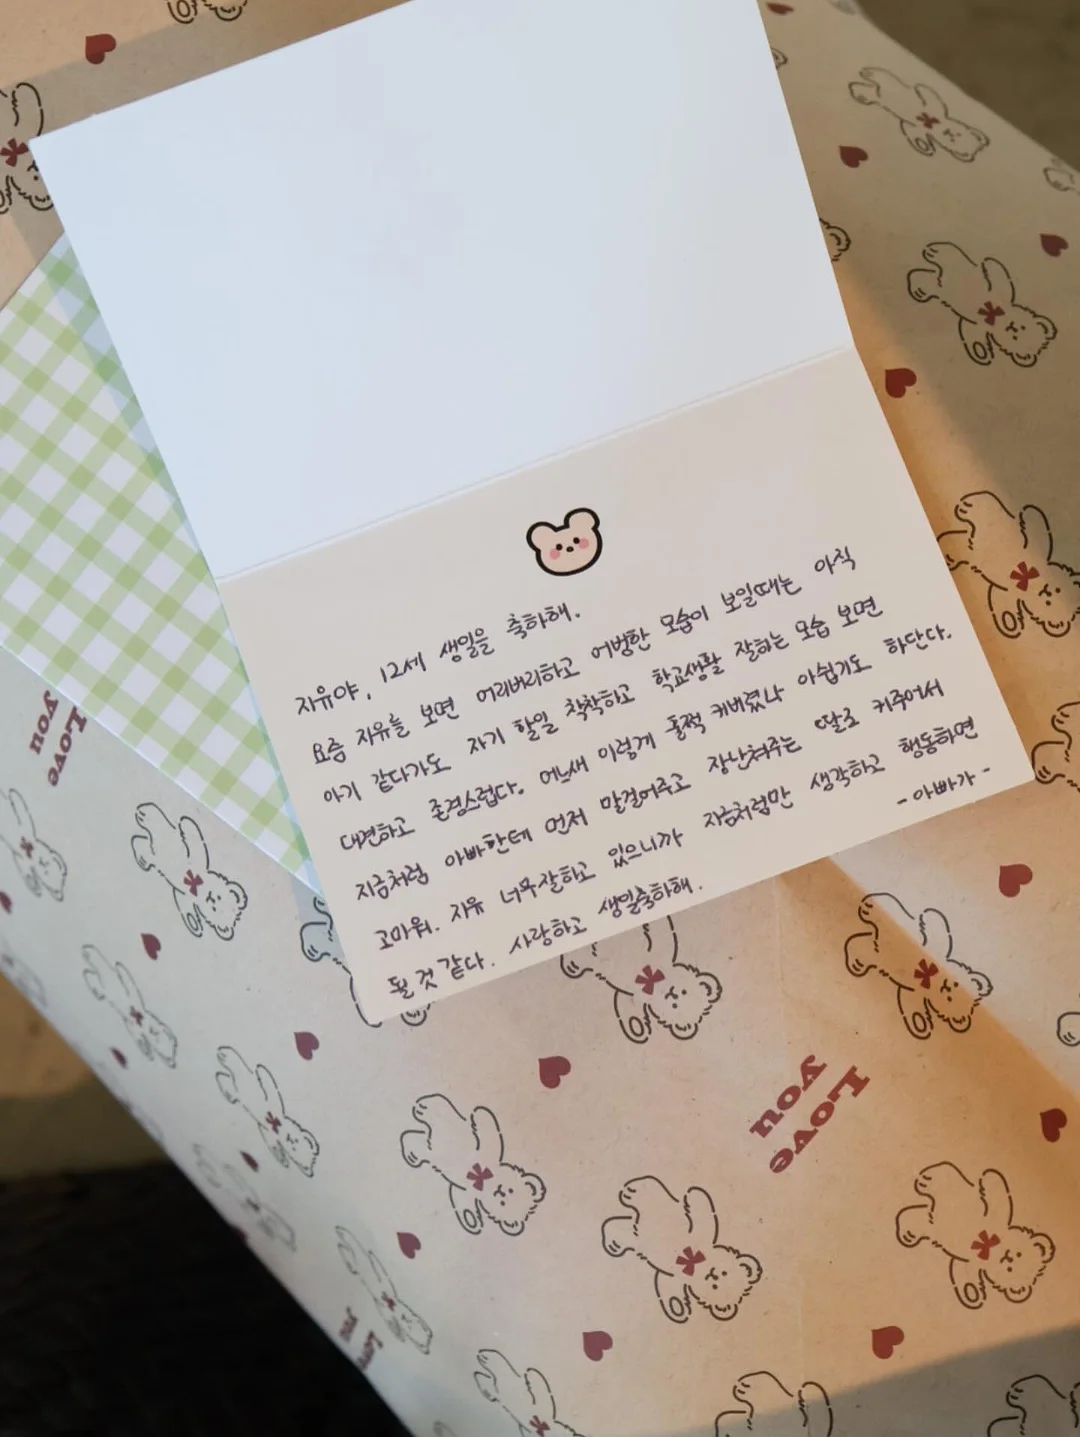 자유야, 12세 생일을 축하해.
요즘 자유를 보면 어리버리하고 어벙한 모습이 보일때는 아직
아기 같다가도 자기 할일 척척하고 학교생활 잘하는 모습 보면
대견하고 존경스럽다. 어느새 이렇게 훌쩍 커버렸나 아쉽기도 하단다.
지금처럼 아빠한테 먼저 말걸어주고 장난쳐주는 딸로 커주어서
고마워. 자유 너무잘하고 있으니까 지금처럼만 생각하고 행동하면
될 것 같다. 사랑하고 생일축하해.
- 아빠가 -
Love
you
Love
you
Love
you